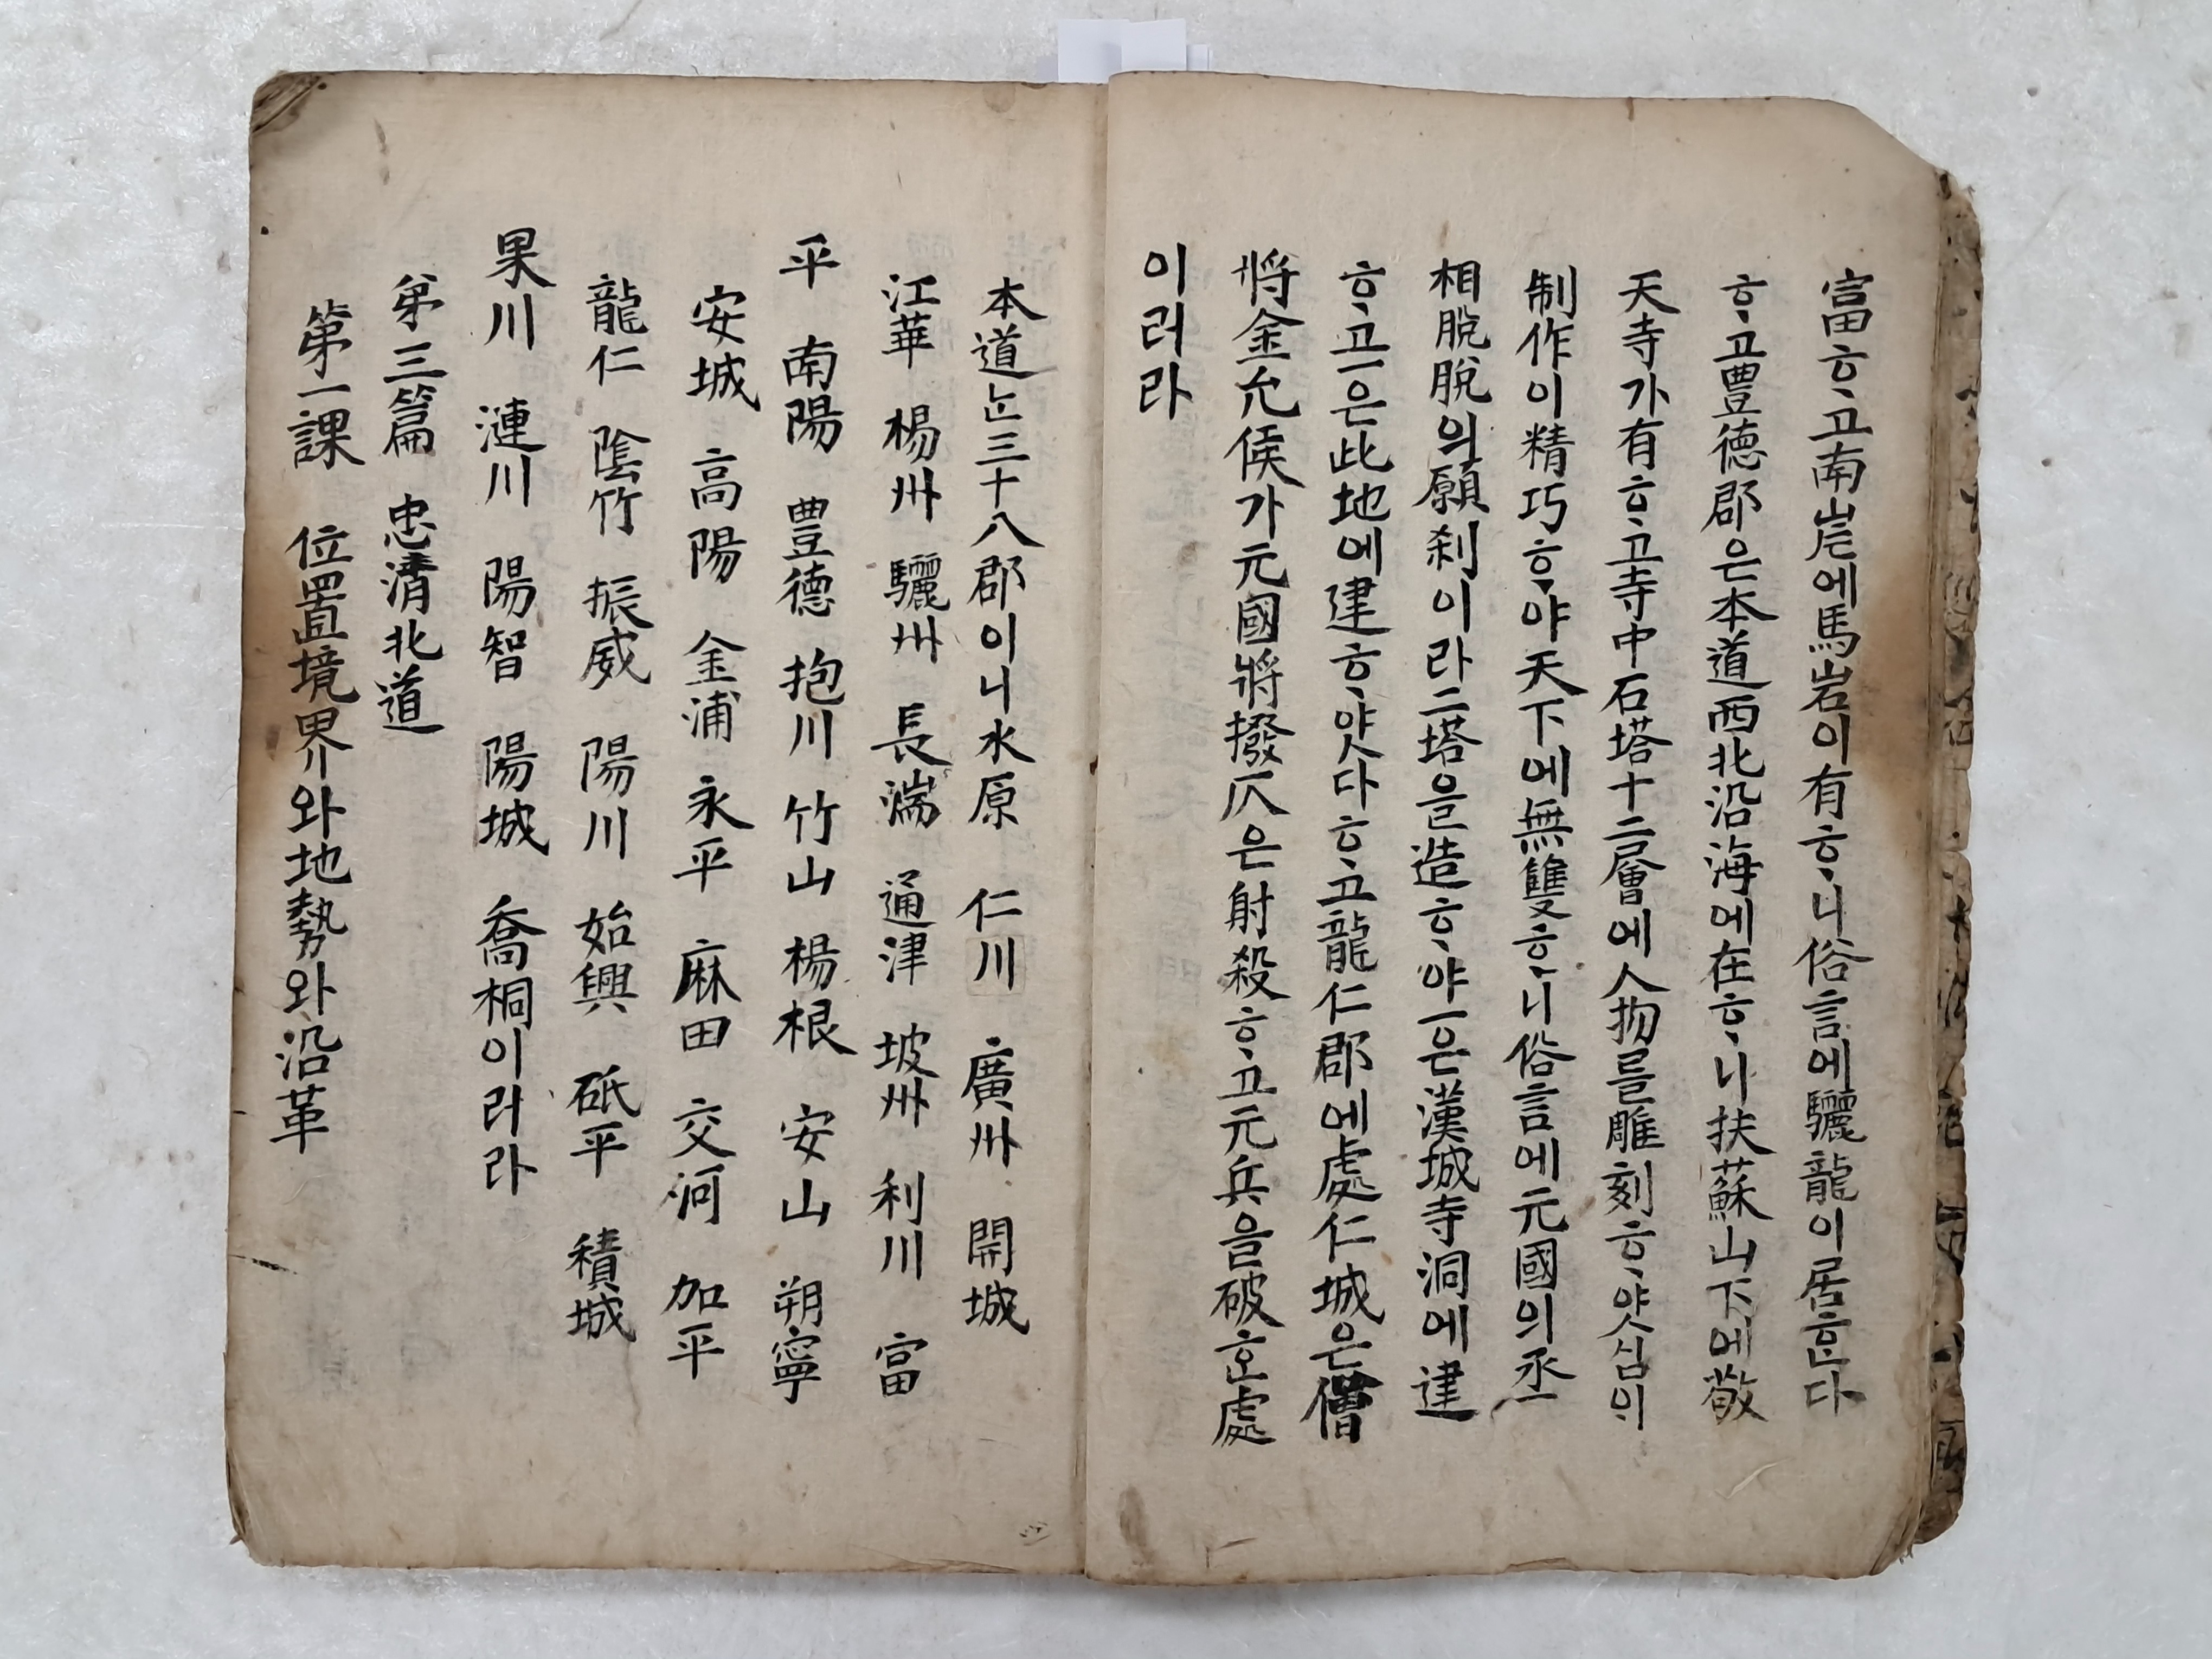 富ᄒᆞ고南岸에馬岩이有ᄒᆞ니俗言에驪龍이居ᄒᆞᆫ다
ᄒᆞ고豊德郡은本道西北沿海에在ᄒᆞ니扶蘇山下에敬
天寺가有ᄒᆞ고寺中石塔十二層에人物를雕刻ᄒᆞ얏심의
制作이精巧ᄒᆞ야天下에無雙ᄒᆞ니俗言에元國의丞
相脫脫의願刹이라二塔을造ᄒᆞ야一은漢城寺洞에建
ᄒᆞ고一은此地에建ᄒᆞ얏다ᄒᆞ고龍仁郡에處仁城은僧
將金允侯가元國將撥㞎은射殺ᄒᆞ고元兵을破ᄒᆞᆫ處
이러라
本道ᄂᆞᆫ三十八郡이니水原 仁川 廣州 開城
江華 楊州 驪州 長湍 通津 坡州 利川 富
平 南陽 豊德 抱川 竹山 楊根 安山 朔寧
安城 高陽 金浦 永平 麻田 交河 加平
龍仁 陰竹 振威 陽川 始興 砥平 積城
果川 漣川 陽智 陽城 喬桐이러라
第三篇 忠淸北道
第一課 位置境界와地勢와沿革